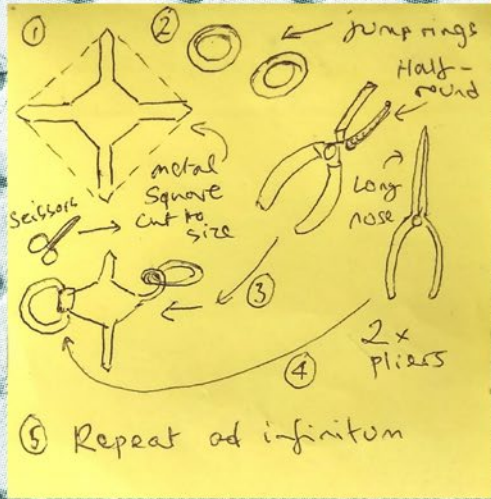 ①
②
jump rings
Half-
round
metal
square
cut to
size
scissors
Long
nose
③
2x
pliers
④
⑤ Repeat ad infinitum